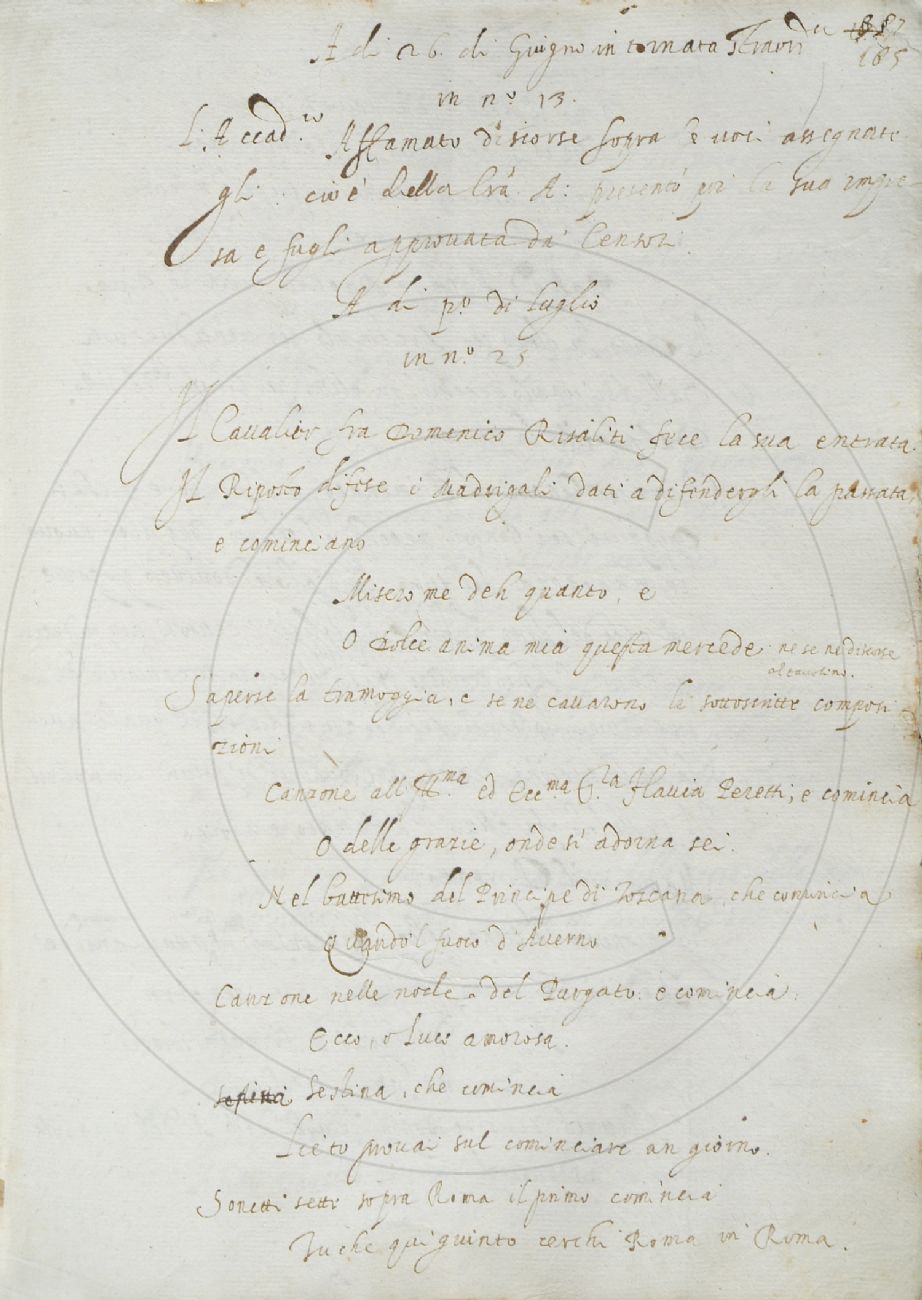 A di 26. di Giugno in tornata
185
in n.º 13.
L'Accad.co Affamato discorse sopra le voci assegnate
gli cioè della lrã A: presentò poi la sua impre
sa e fugli approuata da' Censori
A di p.º di Luglio
in n.º 25
Il Caualier fra Domenico Risaliti fece la sua entrata
Il Riposto difese i Madrigali dati a difendergli la passata,
e cominciano
Misero me deh quanto, e
O dolce anima mia questa mercede: ne se ne discorse
S'aperse la tramoggia, e se ne cauarono le sottoscritte composi
zioni
Canzone all' Ill.ma ed Ecc.ma S.ra Flauia Peretti, e comincia
O delle grazie, onde si adorna sei.
Nel battesimo del Principe di Toscana, che comincia
Quando'l fuoco d'Auerno
Canzone nelle nozze del Purgato: e comincia,
Ecco, o luce amorosa.
Sestina, che comincia
Lieto prouai sul cominciare un giorno.
Sonetti sette sopra Roma il primo comincia
Tu che qui giunto cerchi Roma in Roma.